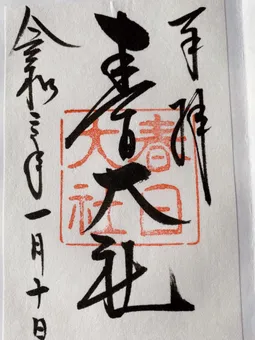 奉拝
春日大社
春日
大社
令和三年一月十日